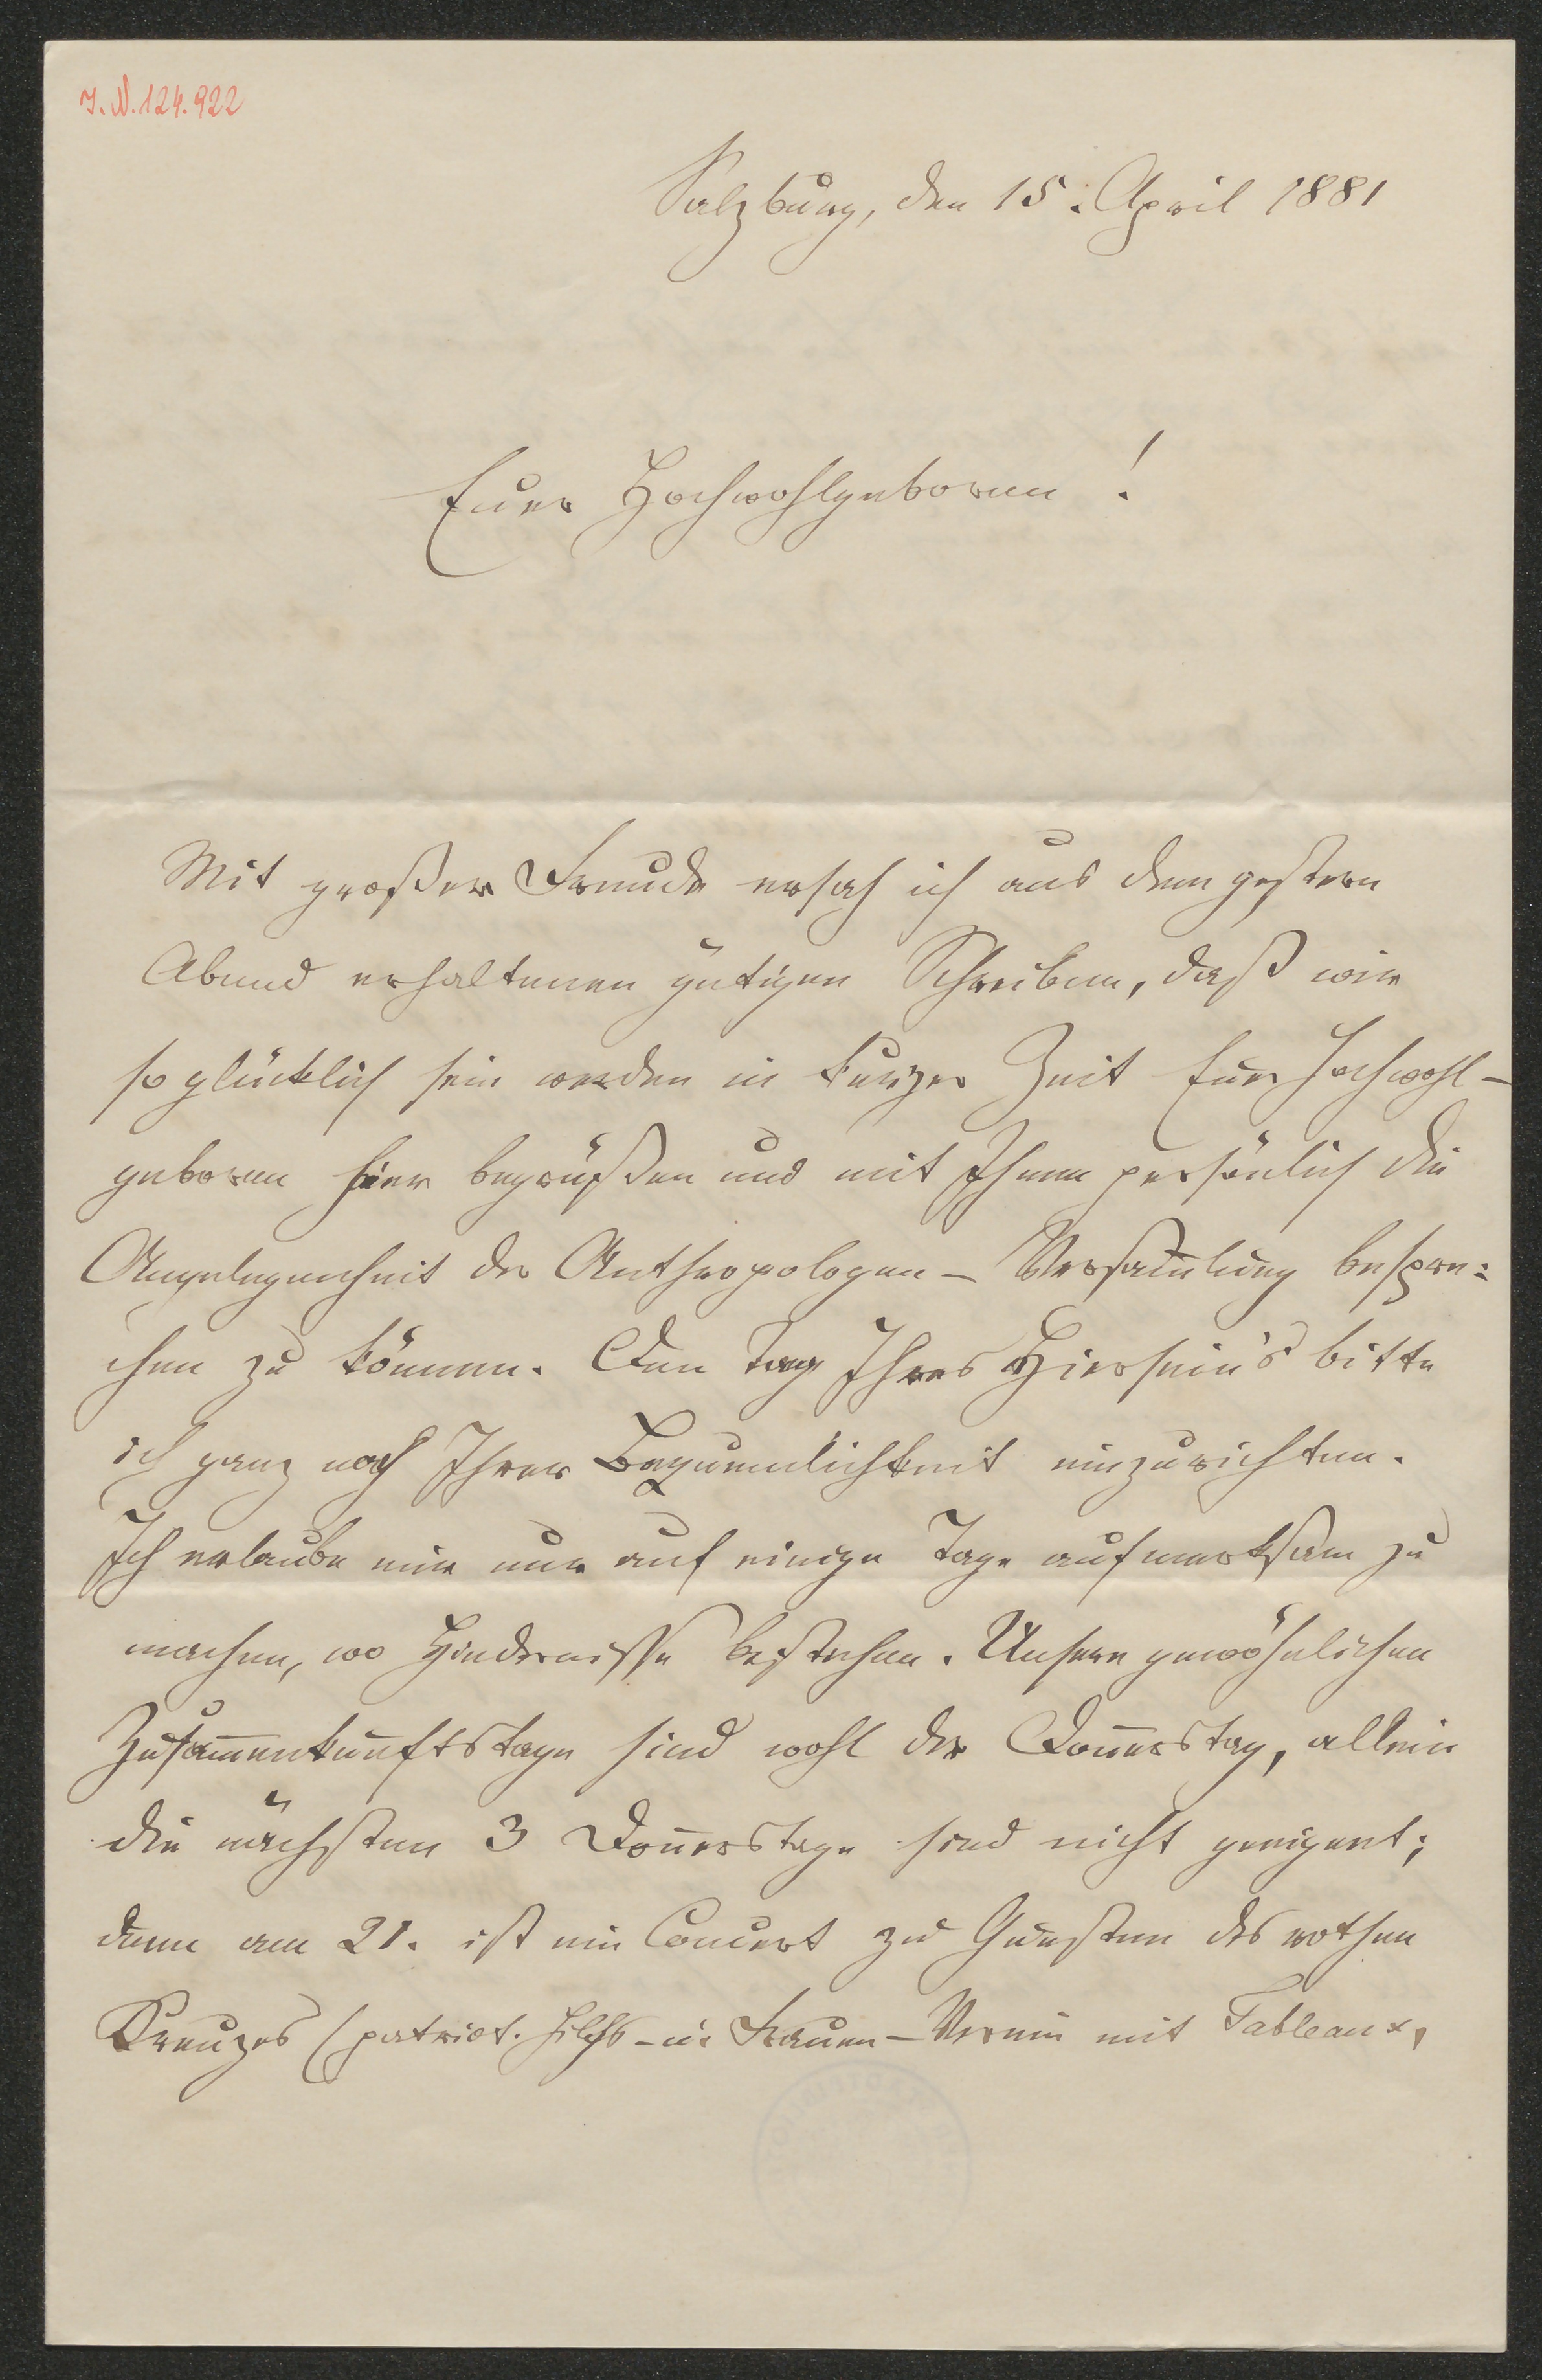 I. N. 124.922
Salzburg, den 15. April 1881
Euer Hochwohlgeboren!
Mit großer Freude ersah ich aus dem gestern
Abend erhaltenen gütigen Schreiben, daß wir
so glücklich sein werden in kurzer Zeit Euer Hochwohl-
geboren hier begrüßen und mit Ihnen persönlich die
Angelegenheit der Anthropologen-Versam̄lung bespre-
chen zu können. Den Tag Ihres Hierseins bitte
ich ganz nach Ihrer Bequemlichkeit einzurichten.
Ich erlaube mir nur auf einige Tage aufmerksam zu
machen, wo Hindernisse bestehen. Unsere gewöhnlichen
Zusam̄enkunftstage sind wohl der Don̄erstag, allein
die nächsten 3 Don̄erstage sind nicht geeignet;
denn am 21. ist ein Concert zu Gunsten des rothen
Kreuzes (patriot. Hilfs- u. Frauen-Verein mit Tableaux,